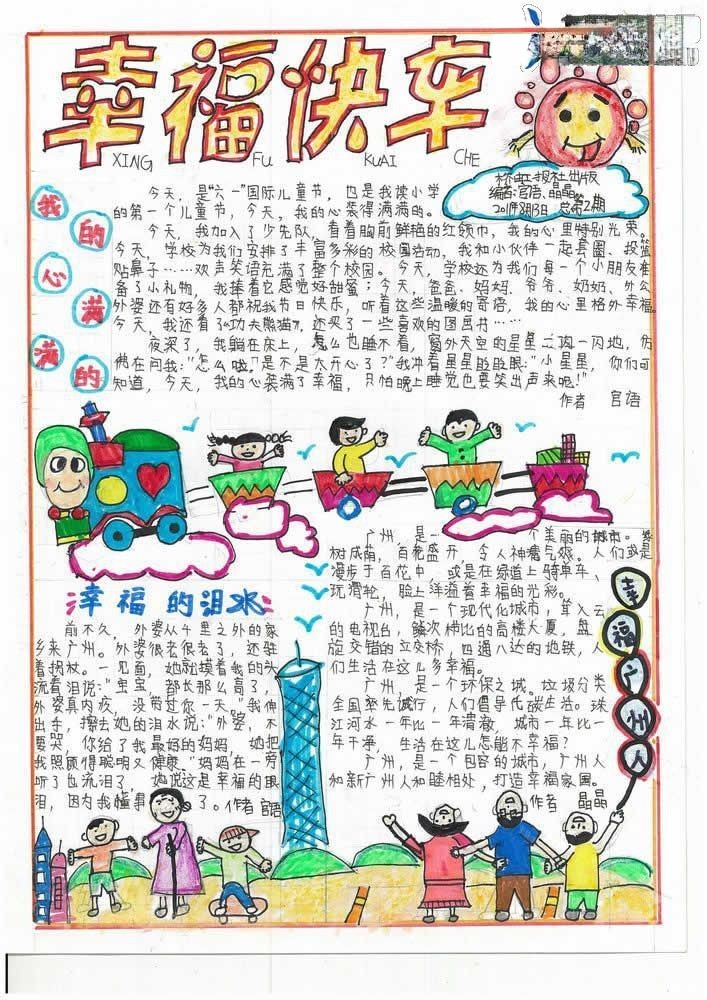 幸福快车
XING FU KUAI CHE
编者:宫语、晶晶
2011年8月13日 总第2期
我的心满满的
今天，是“六一”国际儿童节，也是我读小学
的第一个儿童节，今天，我的心装得满满的。
今天，我加入了少先队，看着胸前鲜艳的红领巾，我的心里特别光荣。
今天，学校为我们安排了丰富多彩的校园活动，我和小伙伴一起套圈、投篮
贴鼻子……欢声笑语充满了整个校园。今天，学校还为我们每一个小朋友准
备了小礼物，我捧着它感觉好甜蜜；今天，爸爸、妈妈、爷爷、奶奶、外公
外婆还有好多人都祝我节日快乐，听着这些温暖的寄语，我的心里格外幸福。
今天，我还看了《功夫熊猫》，还买了一些喜欢的图画书……
夜深了，我躺在床上，怎么也睡不着，窗外天空的星星一闪一闪地，仿
佛在问我：“怎么啦？是不是太开心了？”我冲着星星眨眨眼：“小星星，你们可
知道，今天，我的心装满了幸福，只怕晚上睡觉也要笑出声来呢！”
作者 宫语
幸福的泪水
前不久，外婆从千里之外的家
乡来广州。外婆很老很老了，还驻
着拐杖。一见面，她就搂着我的头
流着泪说：“宝宝，都长那么高了，
外婆真内疚，没带过你一天。”我伸
出手，擦去她的泪水说：“外婆，不
要哭，你给了我最好的妈妈，她把
我照顾得聪明又健康。”妈妈在一旁
听了也流泪了，她说这是幸福的眼
泪，因为我懂事了。作者 宫语
广州，是一个美丽的城市。绿
树成荫，百花盛开，令人神清气爽。人们或是
漫步于百花中，或是在绿道上骑单车、
玩滑轮，脸上洋溢着幸福的光彩。
广州，是一个现代化城市，耸入云
的电视台，鳞次栉比的高楼大厦，盘
旋交错的立交桥，四通八达的地铁，人
们生活在这儿多幸福。
广州，是一个环保之城。垃圾分类
全国率先诚行，人们倡导低碳生活。珠
江河水一年比一年清澈，城市一年比一
年干净，生活在这儿怎能不幸福？
广州，是一个包容的城市，广州人
和新广州人和睦相处，打造幸福家园。
作者 晶晶
幸福广州人